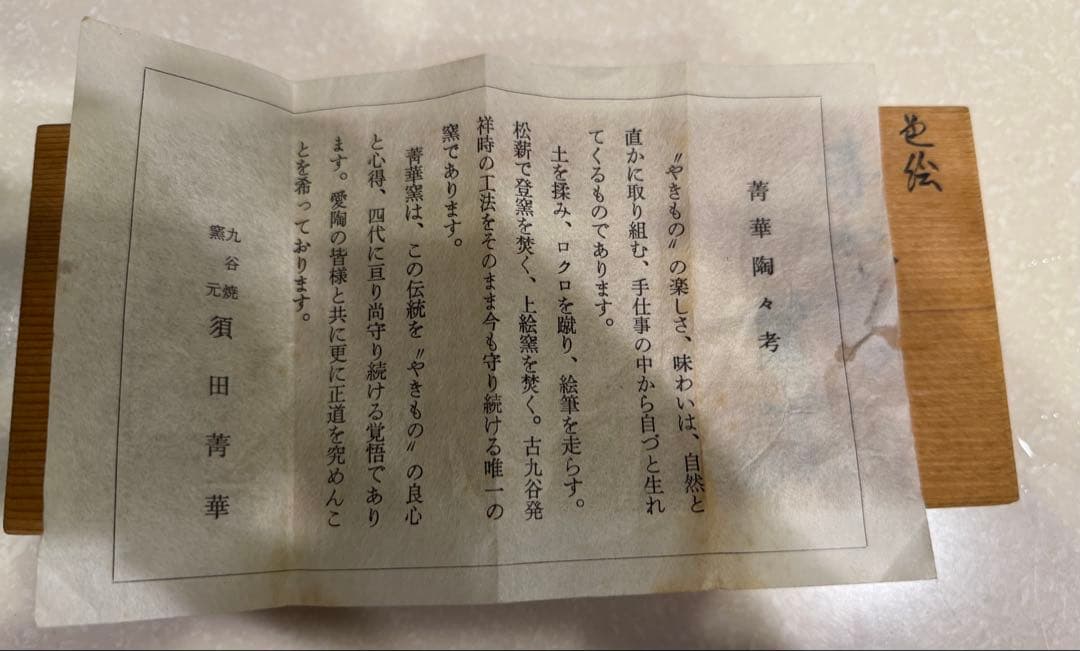 色絵
菁華陶々考
〃やきもの〃の楽しさ、味わいは、自然と
直かに取り組む、手仕事の中から自づと生れ
てくるものであります。
土を揉み、ロクロを蹴り、絵筆を走らす。
松薪で登窯を焚く、上絵窯を焚く。古九谷発
祥時の工法をそのまま今も守り続ける唯一の
窯であります。
菁華窯は、この伝統を〃やきもの〃の良心
と心得、四代に亘り尚守り続ける覚悟であり
ます。愛陶の皆様と共に更に正道を究めんこ
とを希っております。
九谷焼
窯元
須田菁華